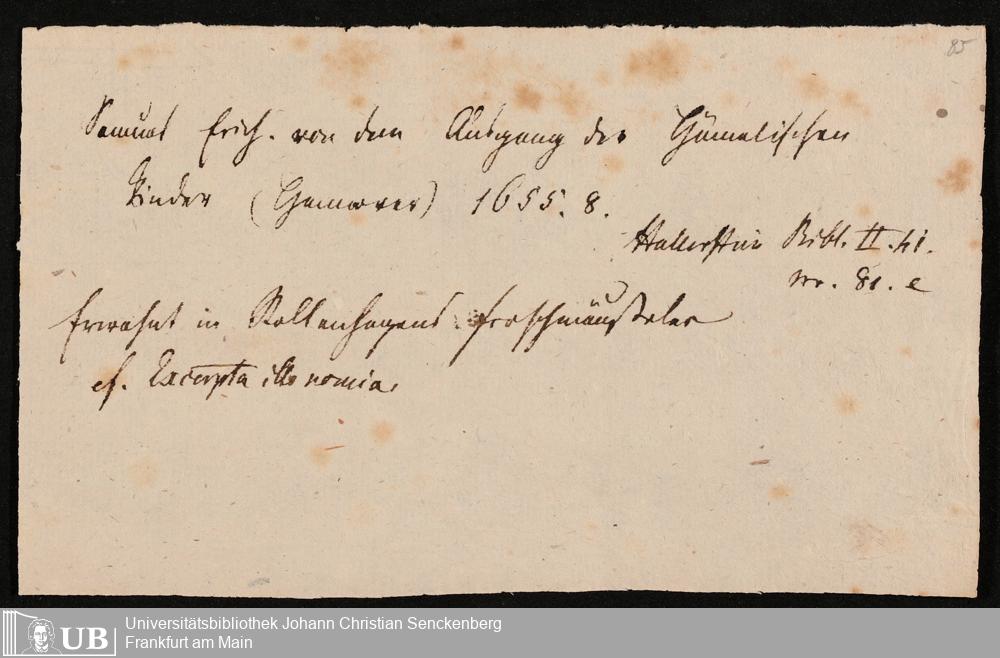 85
Samuel Erich. von dem Ausgang der Hämelischen
Kinder (Hannover) 1655. 8.
Hallerstein Bibl. II. hi.
nr. 81. e
Erwähnt in Rollenhagens froschmäuseler
cf. Excerpta
UB
Universitätsbibliothek Johann Christian Senckenberg
Frankfurt am Main